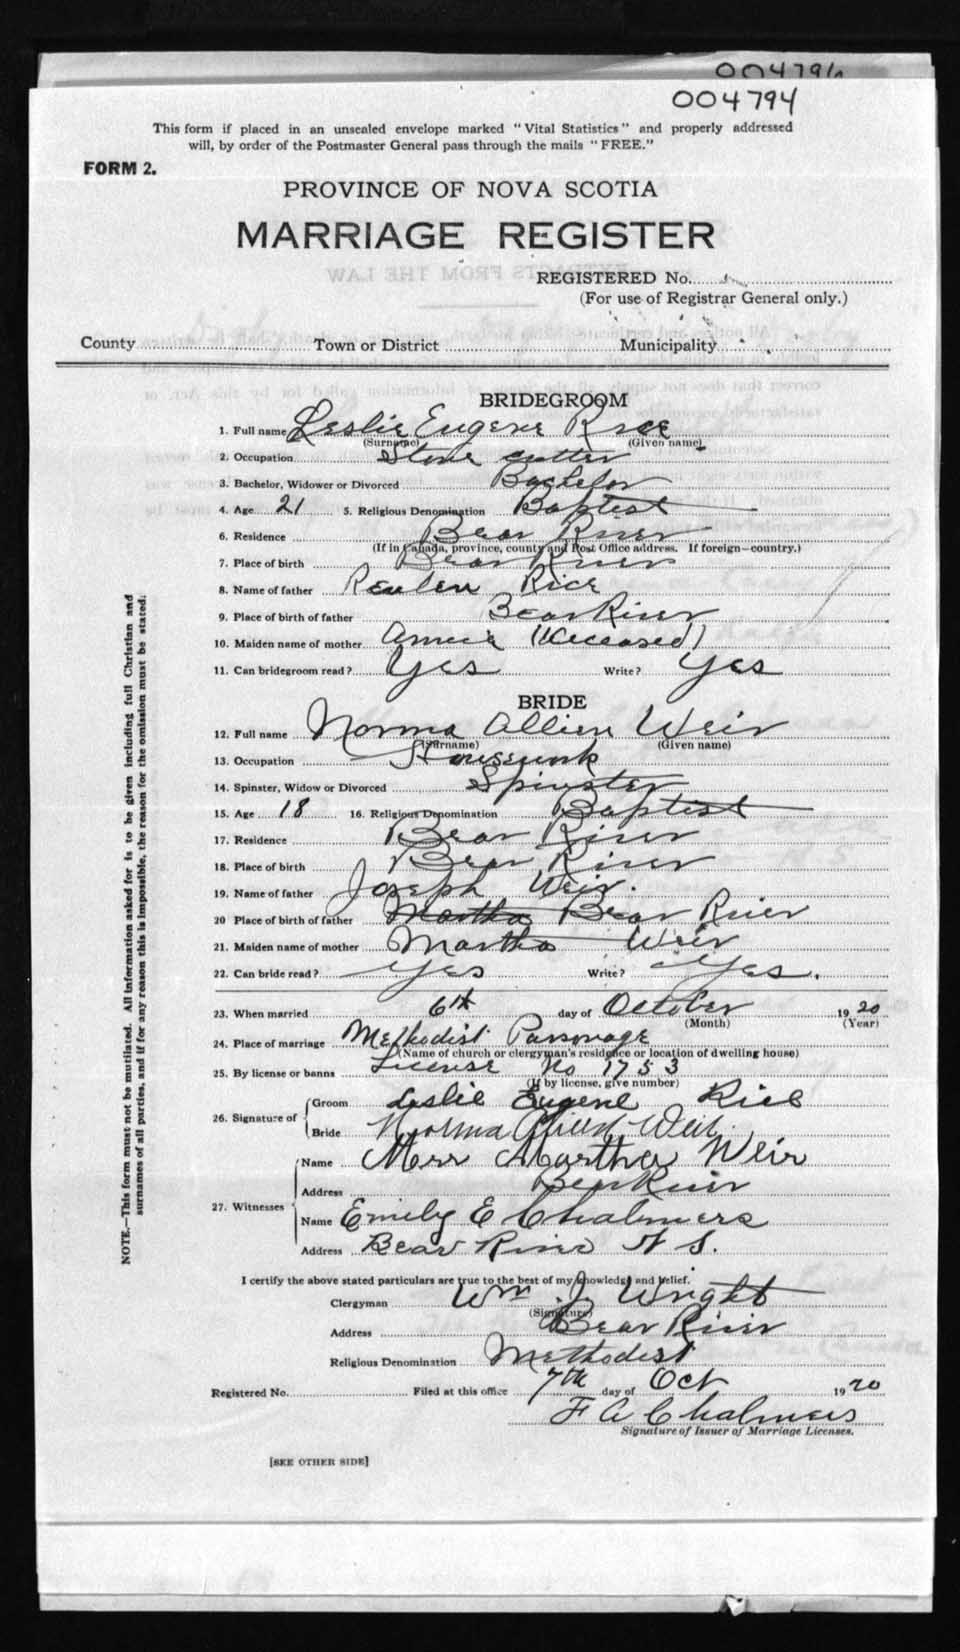 004796
004794
This form if placed in an unsealed envelope marked "Vital Statistics" and properly addressed
will, by order of the Postmaster General pass through the mails "FREE."
FORM 2.
PROVINCE OF NOVA SCOTIA
MARRIAGE REGISTER
EXTRACTS FROM THE LAW
REGISTERED No.
(For use of Registrar General only.)
County Town or District Municipality
BRIDEGROOM
1. Full name Leslie Eugene Rice
(Surname) (Given name)
2. Occupation Stone cutter
3. Bachelor, Widower or Divorced Bachelor
4. Age 21 5. Religious Denomination Baptist
6. Residence Bear River
(If in Canada, province, county and Post Office address. If foreign—country.)
7. Place of birth Bear River
8. Name of father Reuben Rice
9. Place of birth of father Bear River
10. Maiden name of mother Annie (Deceased)
11. Can bridegroom read? Yes Write? Yes
BRIDE
12. Full name Norma Weir
(Surname) (Given name)
13. Occupation Housework
14. Spinster, Widow or Divorced Spinster
15. Age 18 16. Religious Denomination Baptist
17. Residence Bear River
18. Place of birth Bear River
19. Name of father Joseph Weir.
20 Place of birth of father Martha Bear River
21. Maiden name of mother Martha Weir
22. Can bride read? Yes Write? Yes.
23. When married 6th day of October 1920
(Month) (Year)
24. Place of marriage Methodist Parsonage
(Name of church or clergyman's residence or location of dwelling house)
25. By license or banns License No 1753
(If by license, give number)
26. Signature of Groom Leslie Eugene Rice
Bride Norma Weir
27. Witnesses Name Mrs Martha Weir
Address Bear River
Name Emily E Chalmers
Address Bear River N S.
I certify the above stated particulars are true to the best of my knowledge and belief.
Clergyman Wm J. Wright
(Signature)
Address Bear River
Religious Denomination Methodist
Registered No. Filed at this office 7th day of Oct 1920
F A Chalmers
Signature of Issuer of Marriage Licenses.
[SEE OTHER SIDE]
NOTE.—This form must not be mutilated. All information asked for is to be given including full Christian and
surnames of all parties, and if for any reason this is impossible, the reason for the omission must be stated.